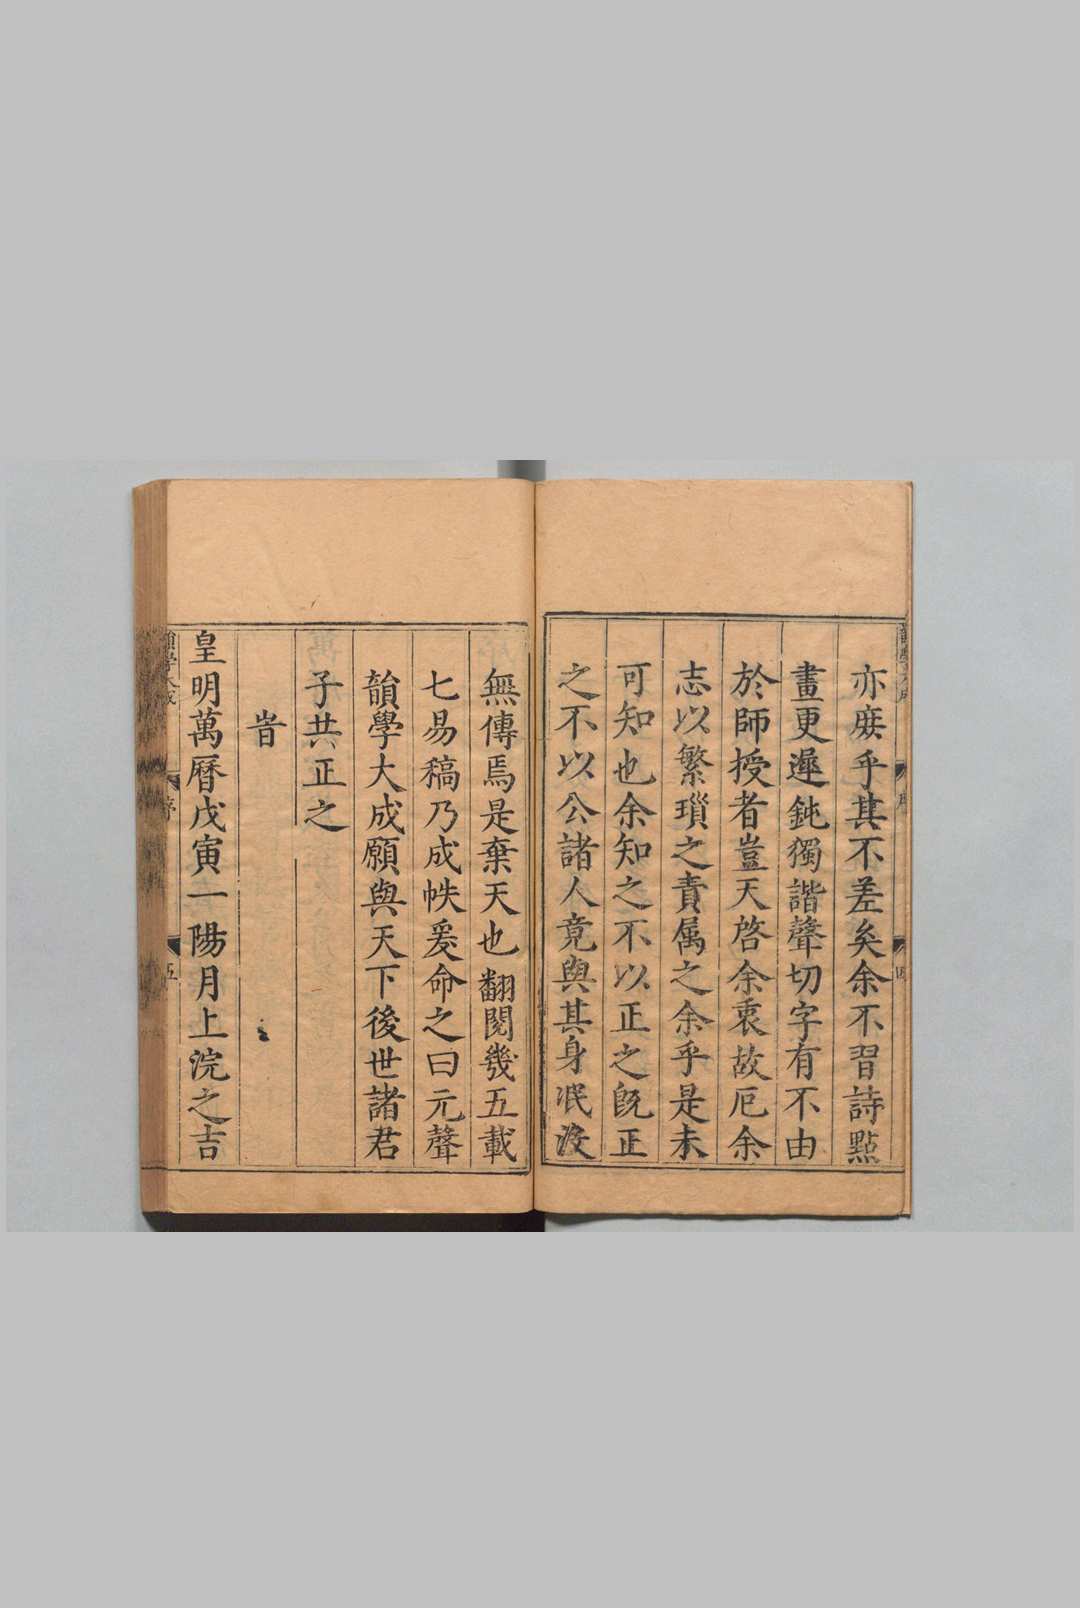 亦庻乎其不差矣余不習詩㸃
畫更遲鈍獨諧聲切字有不由
於師授者豈天啓余衷故厄余
志以繁瑣之責属之余乎是未
可知也余知之不以正之既正
之不以公諸人竟與其身泯没
無傳焉是棄天也翻閱幾五載
七易稿乃成帙爰命之曰元聲
韻學大成願與天下後世諸君
子共正之
旹
皇明萬曆戊寅一陽月上浣之吉
韻學大成
序
五